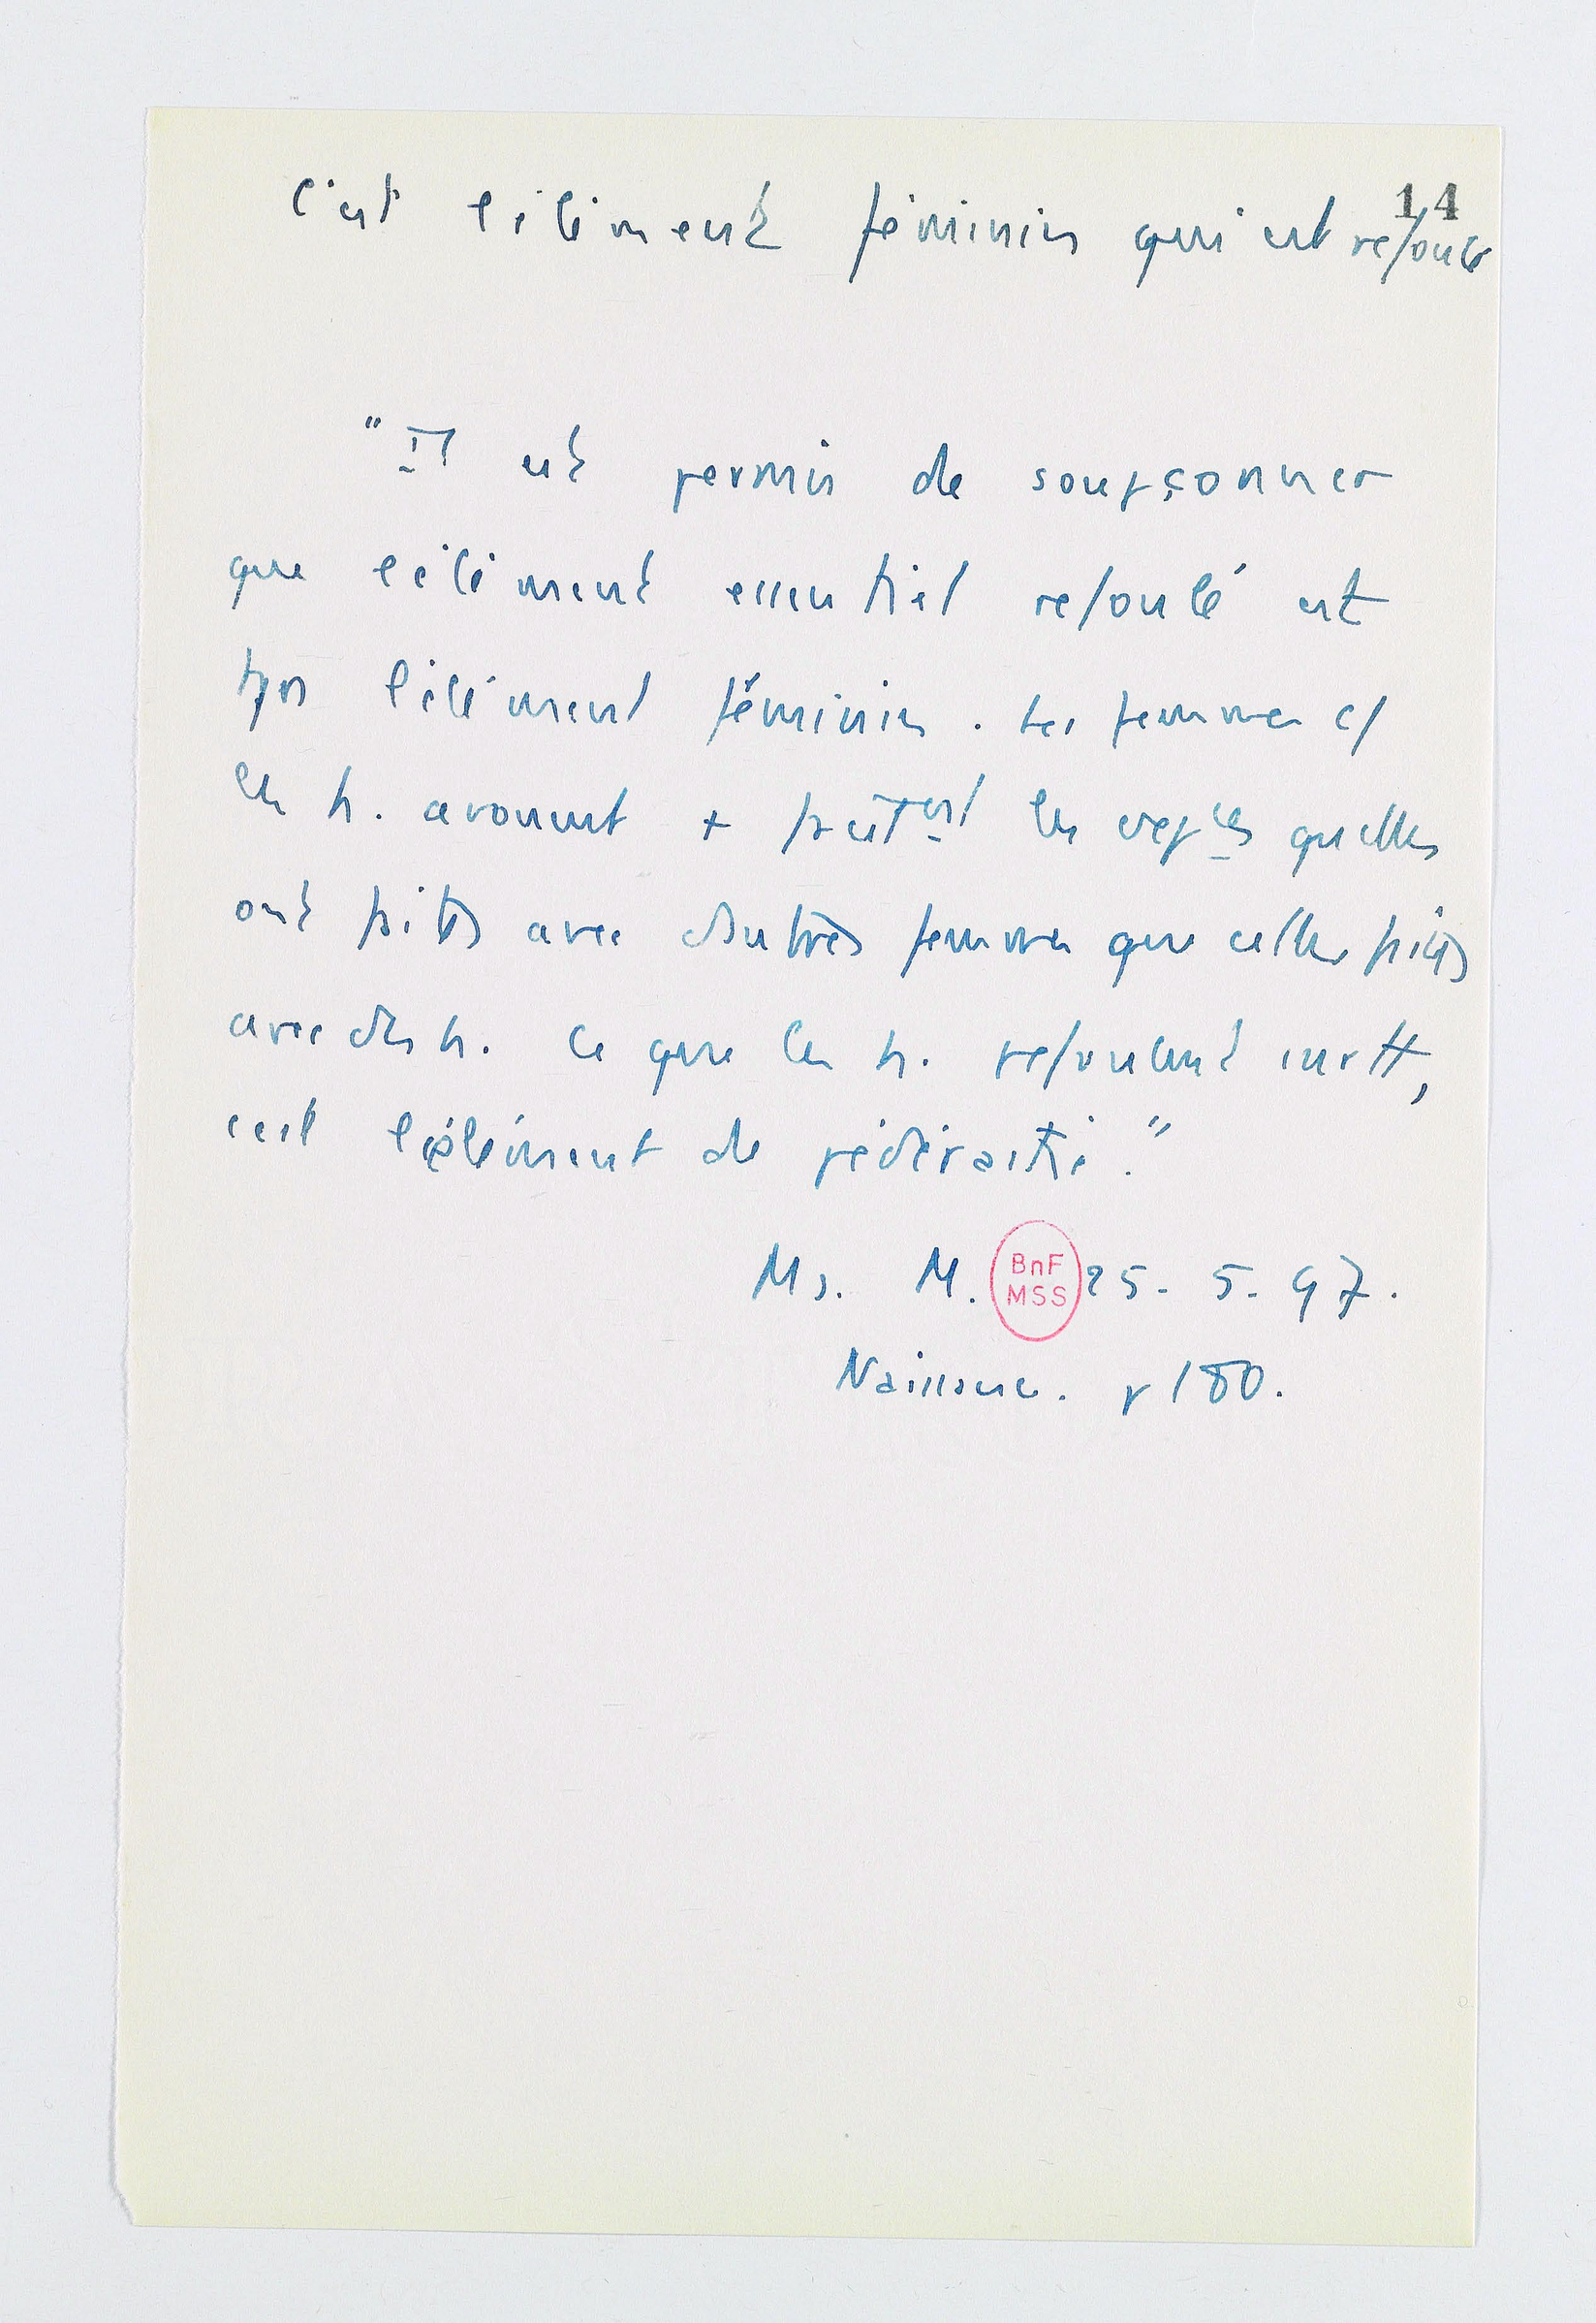 14
C'est l'élément féminin qui est refoulé
"Il est permis de soupçonner
que l'élément essentiel refoulé est
tjrs l'élément féminin. Les femmes et
les h. avouent + les exp ces qu'elles
ont faites avec d'autres femmes que celles faites
avec des h. Ce que les h. refoulent
c'est l'élément de pédérastie."
Ms. M. 25. 5. 97.
BnF
MSS
Naissance. p 180.